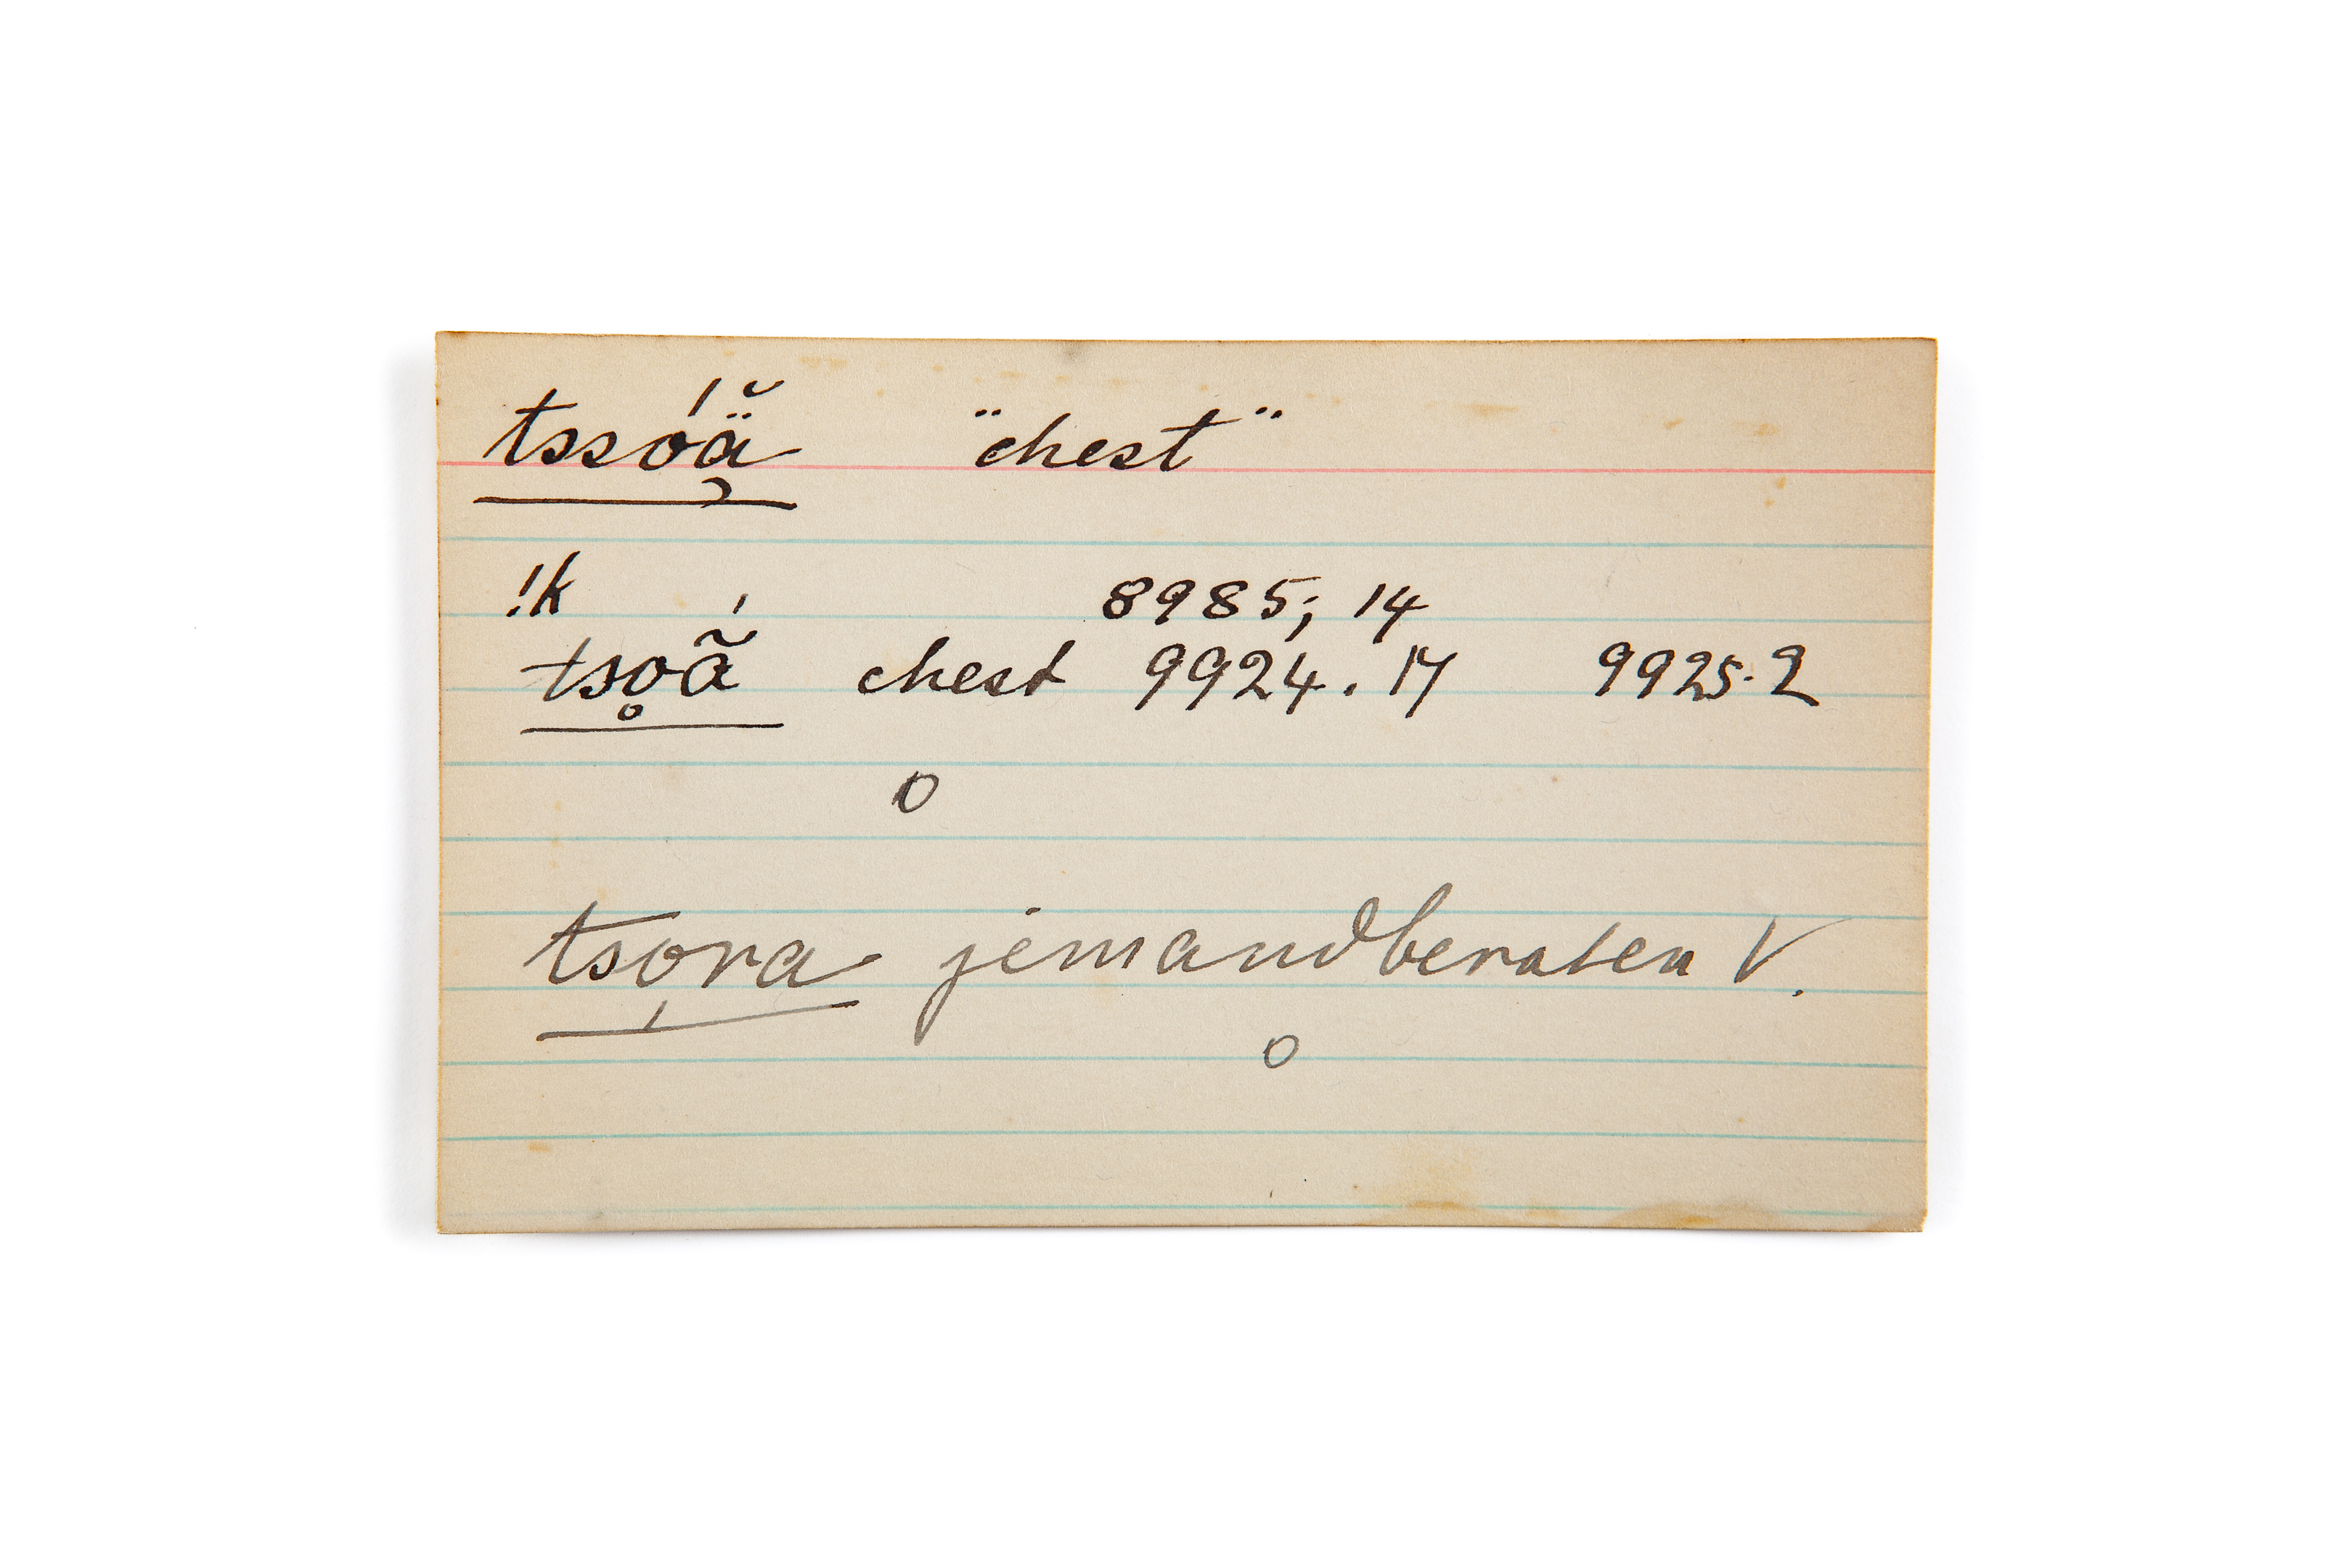 tssóä̜̆ "chest"
!k 8985; 14
tso̥ã́ chest 9924. 17 9925.2
O
tso̩ra jemand beraten V.
O